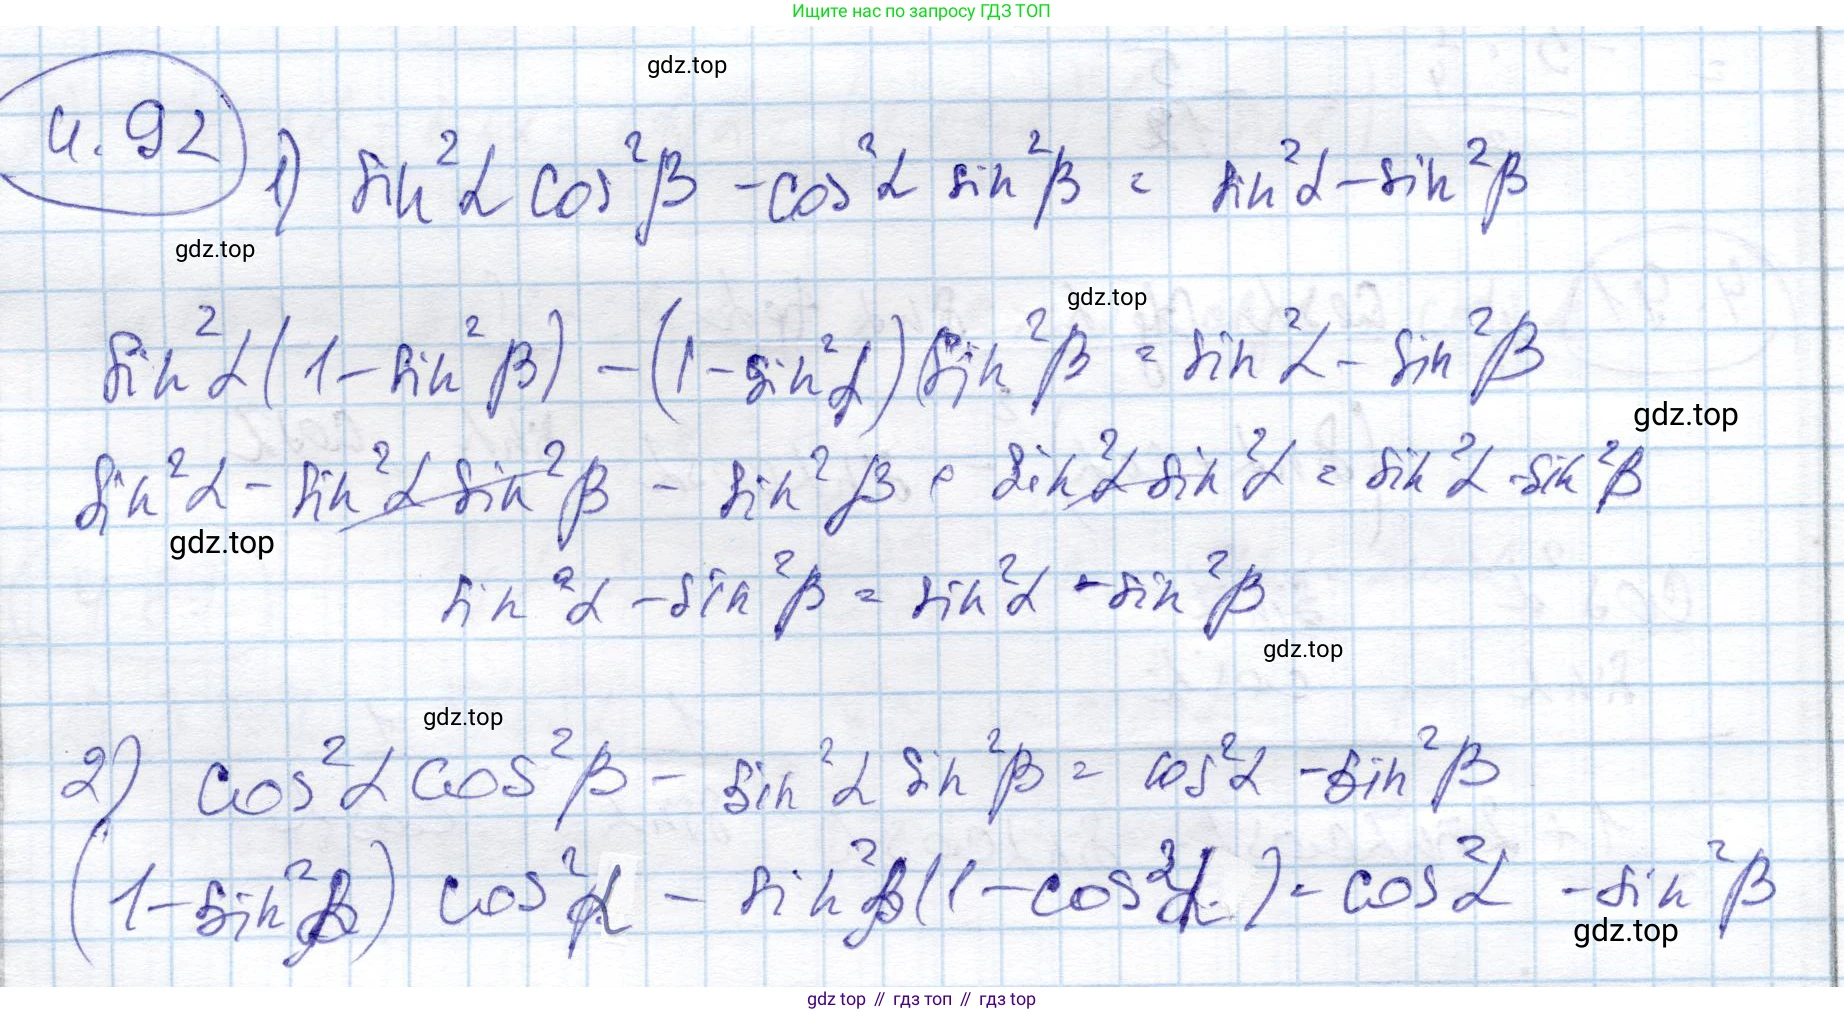 Ищите нас по запросу ГДЗ ТОП
gdz.top
4.92
1) sin²α cos²β - cos²α sin²β = sin²α - sin²β
gdz.top
gdz.top
sin²α(1 - sin²β) - (1 - sin²α) sin²β = sin²α - sin²β
gdz.top
sin²α - sin²α sin²β - sin²β + sin²α sin²α = sin²α - sin²β
gdz.top
sin²α - sin²β = sin²α - sin²β
gdz.top
gdz.top
2) cos²α cos²β - sin²α sin²β = cos²α - sin²β
(1 - sin²β) cos²α - sin²β(1 - cos²α) = cos²α - sin²β
gdz.top
gdz top // гдз топ // gdz top